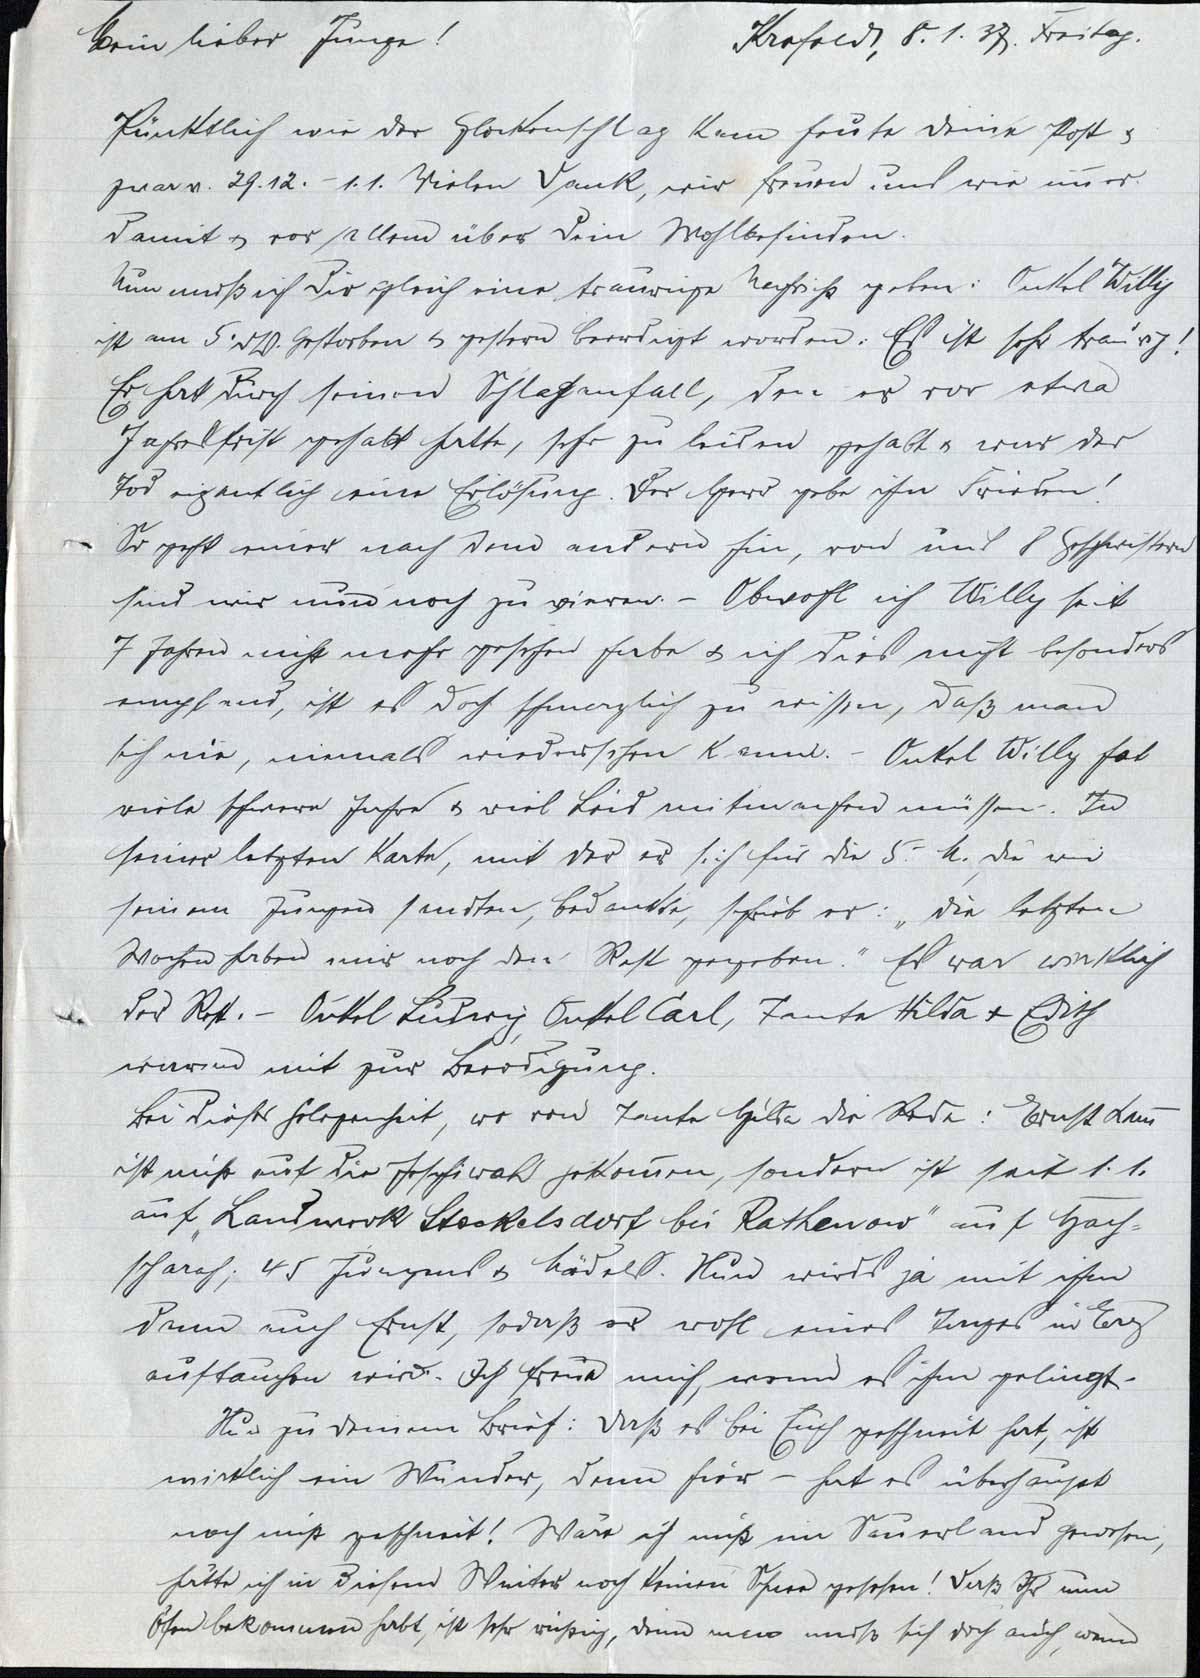 Mein lieber Junge! Krefeld, 8.1.37. Freitag.
Pünktlich wie der Glockenschlag kam heute deine Post &
zwar v. 29.12. – 1.1. Vielen Dank, wir freuen uns wie immer
damit & vor allem über dein Wohlbefinden.
Nun muß ich Dir gleich eine traurige Nachricht geben: Onkel Willy
ist am 5. ds. gestorben & gestern beerdigt worden. Es ist sehr traurig!
Er hat durch seinen Schlaganfall, den er vor etwa
Jahresfrist gehabt hatte, sehr zu leiden gehabt & war der
Tod eigentlich eine Erlösung. Der Herr gebe ihm Frieden!
So geht einer nach dem andern hin, von uns 8 Geschwistern
sind wir nun noch zu vieren. – Obwohl ich Willy seit
7 Jahren nicht mehr gesehen habe & ich dies nicht besonders
empfand, ist es doch schmerzlich zu wissen, daß man
sich nie, niemals wiedersehen kann. – Onkel Willy hat
viele schwere Jahre & viel Leid mitmachen müssen. In
seiner letzten Karte, mit der er sich für die 5.- M. die wir
seinem Jungen sandten, bedankte, schrieb er: „die letzten
Wochen haben mir noch den Rest gegeben." Es war wirklich
der Rest. – Onkel Ludwig, Onkel Carl, Tante Hilda & Edith
waren mit zur Beerdigung.
Bei dieser Gelegenheit, wo von Tante Hilda die Rede: Ernst
ist nicht auf die gekommen, sondern ist seit 1.1.
auf „Landwerk Steckelsdorf bei Rathenow" auf Hach-
scharah; 45 Jungens & Mädels. Nun wirds ja mit ihm
dann auch Ernst, sodaß er wohl eines Tages in Erez
auftauchen wird. Ich freue mich, wenn es ihm gelingt.
Nun zu deinem Brief: Daß es bei Euch geschneit hat, ist
wirklich ein Wunder, denn hier – hat es überhaupt
noch nicht geschneit! Wäre ich nicht im Sauerland gewesen,
hätte ich in diesem Winter noch keinen Schnee gesehen! Daß Ihr nun
Öfen bekommen habt, ist sehr richtig, denn man muß sich doch auch, wenn